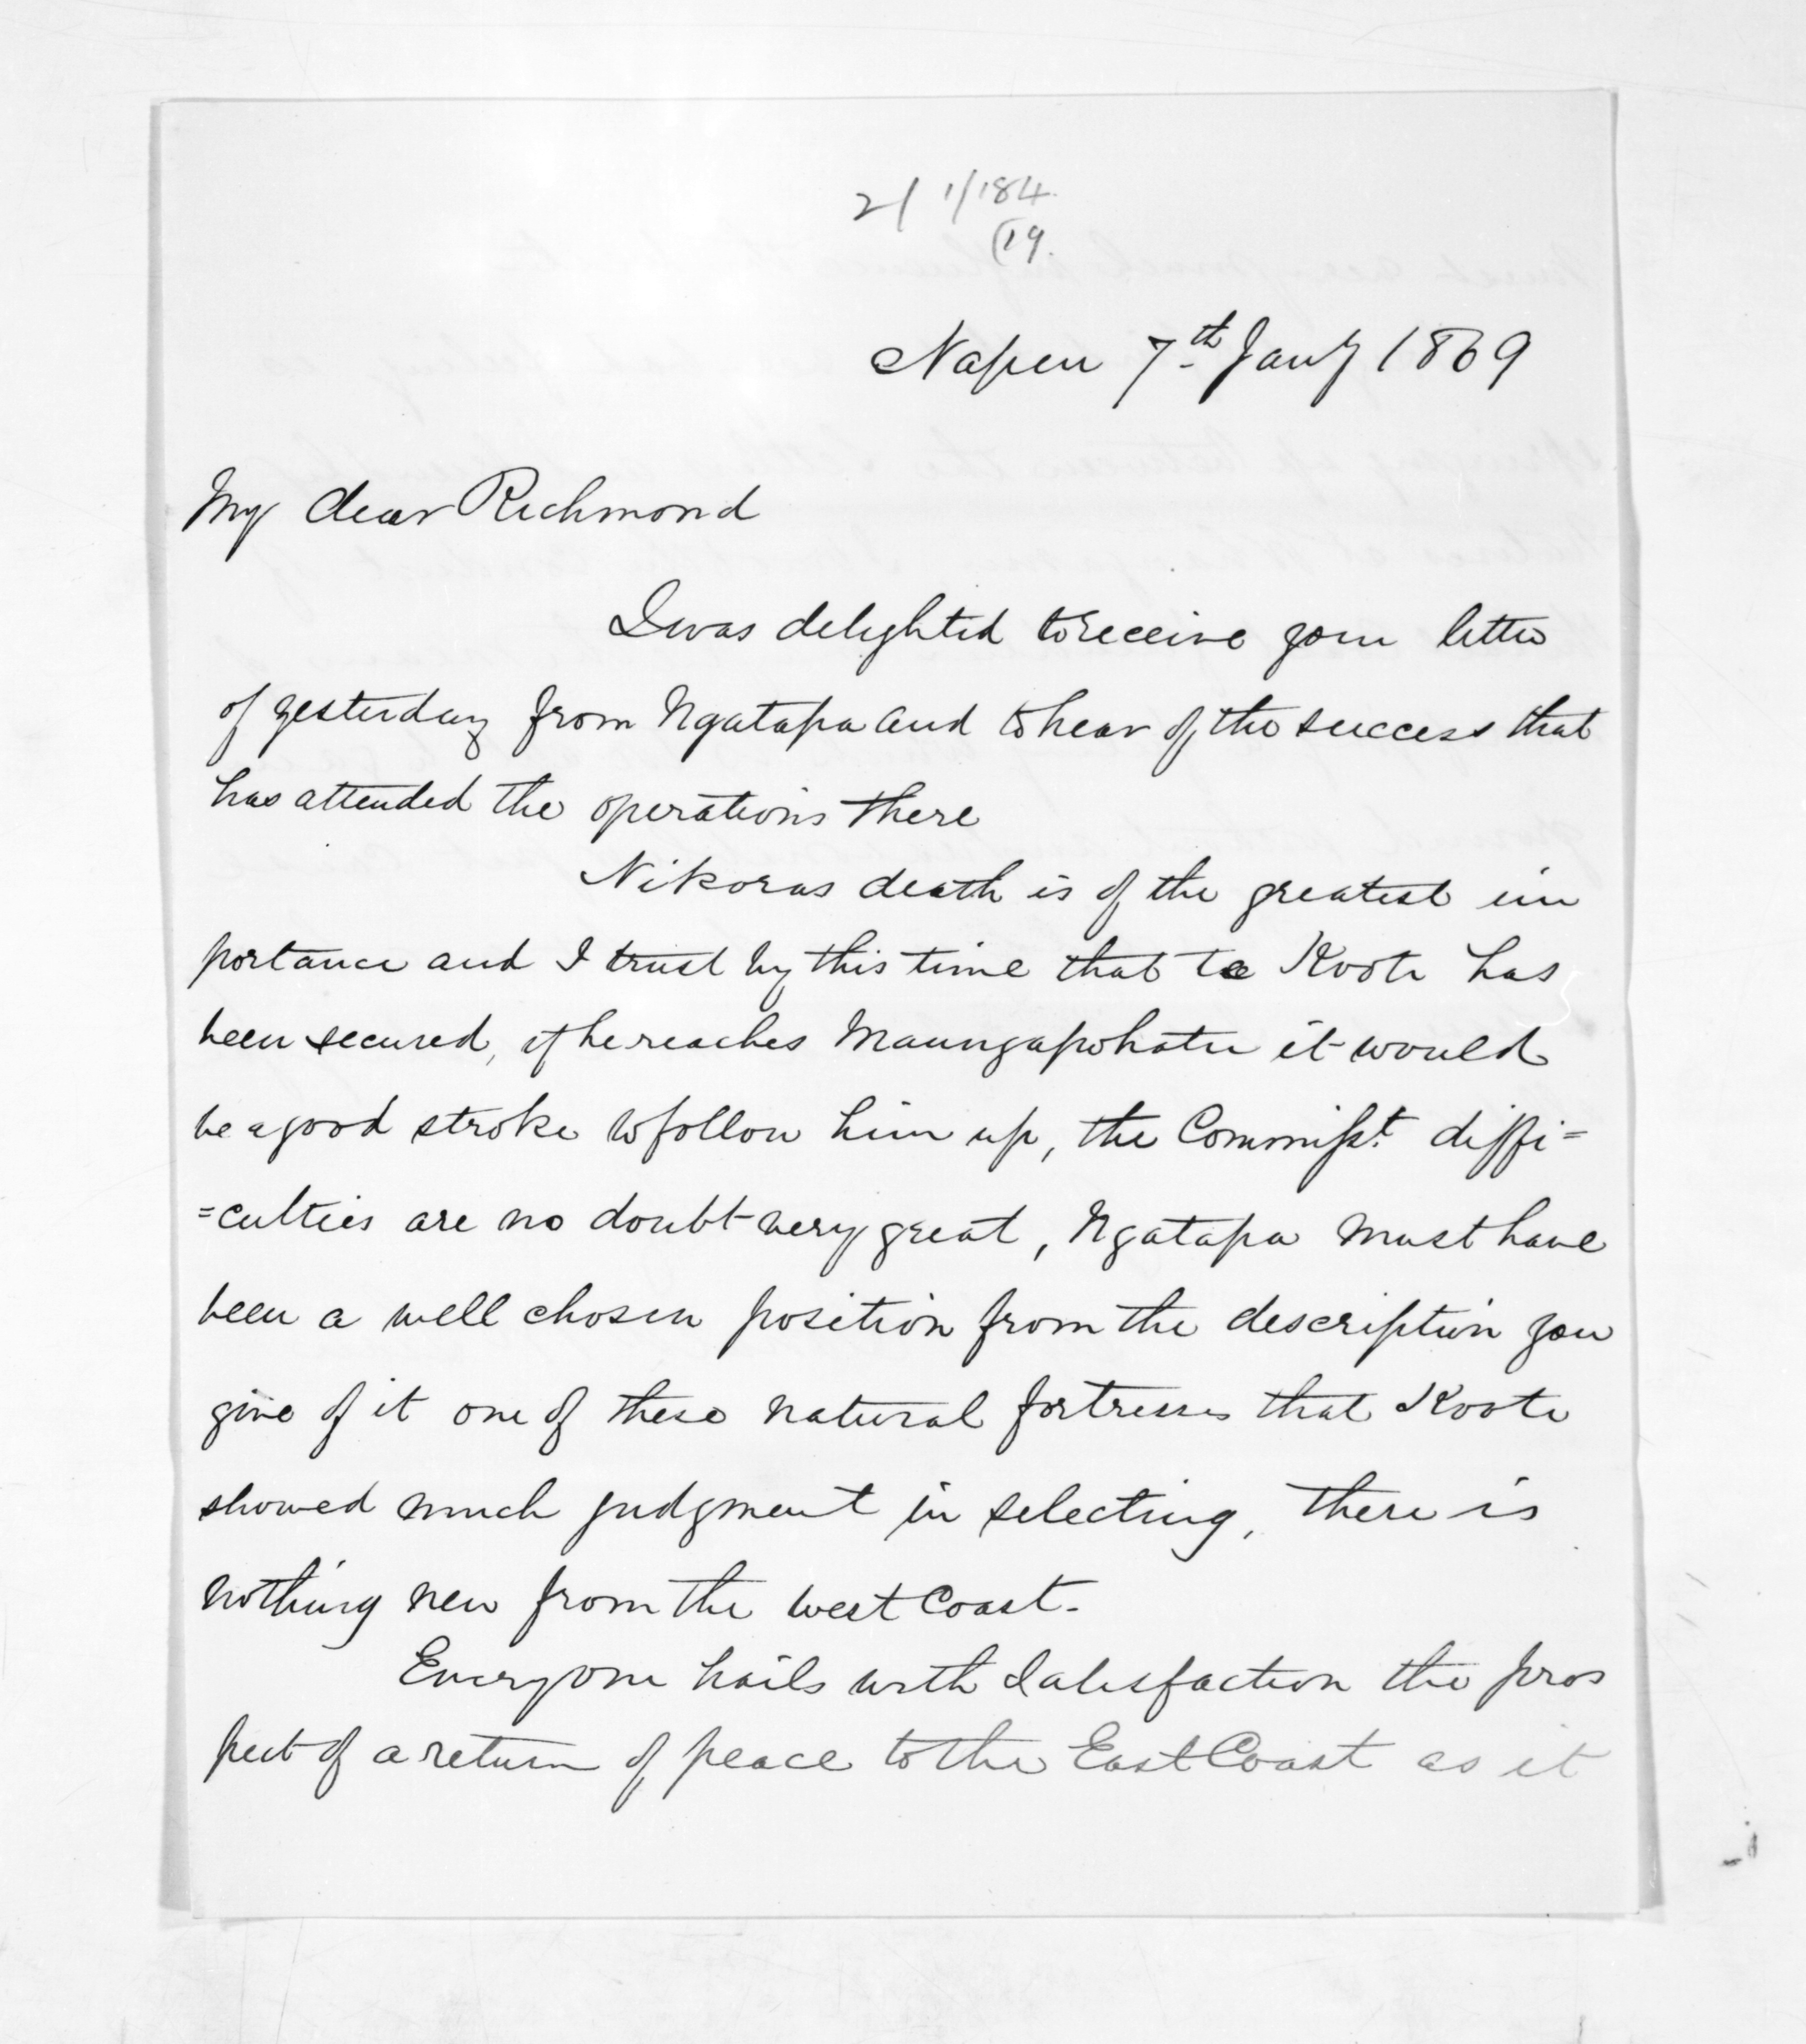 2/ 1/184.
(19.
Napier 7th Jany 1869
My dear Richmond
I was delighted to receive your letter
of yesterday from Ngatapa and to hear of the success that
has attended the operations there
Nikoras death is of the greatest im
portance and I trust by this time that te Kooti has
been secured, if he reaches Maungapohatu it would
be a good stroke to follow him up, the Commisst. diffi=
=culties are no doubt very great, Ngatapa must have
been a well chosen position from the description you
give of it one of these natural fortresses that Kooti
showed much judgment in selecting, there is
nothing new from the West Coast-
Everyone hails with satisfaction the pros
pect of a return of peace to the East Coast as it